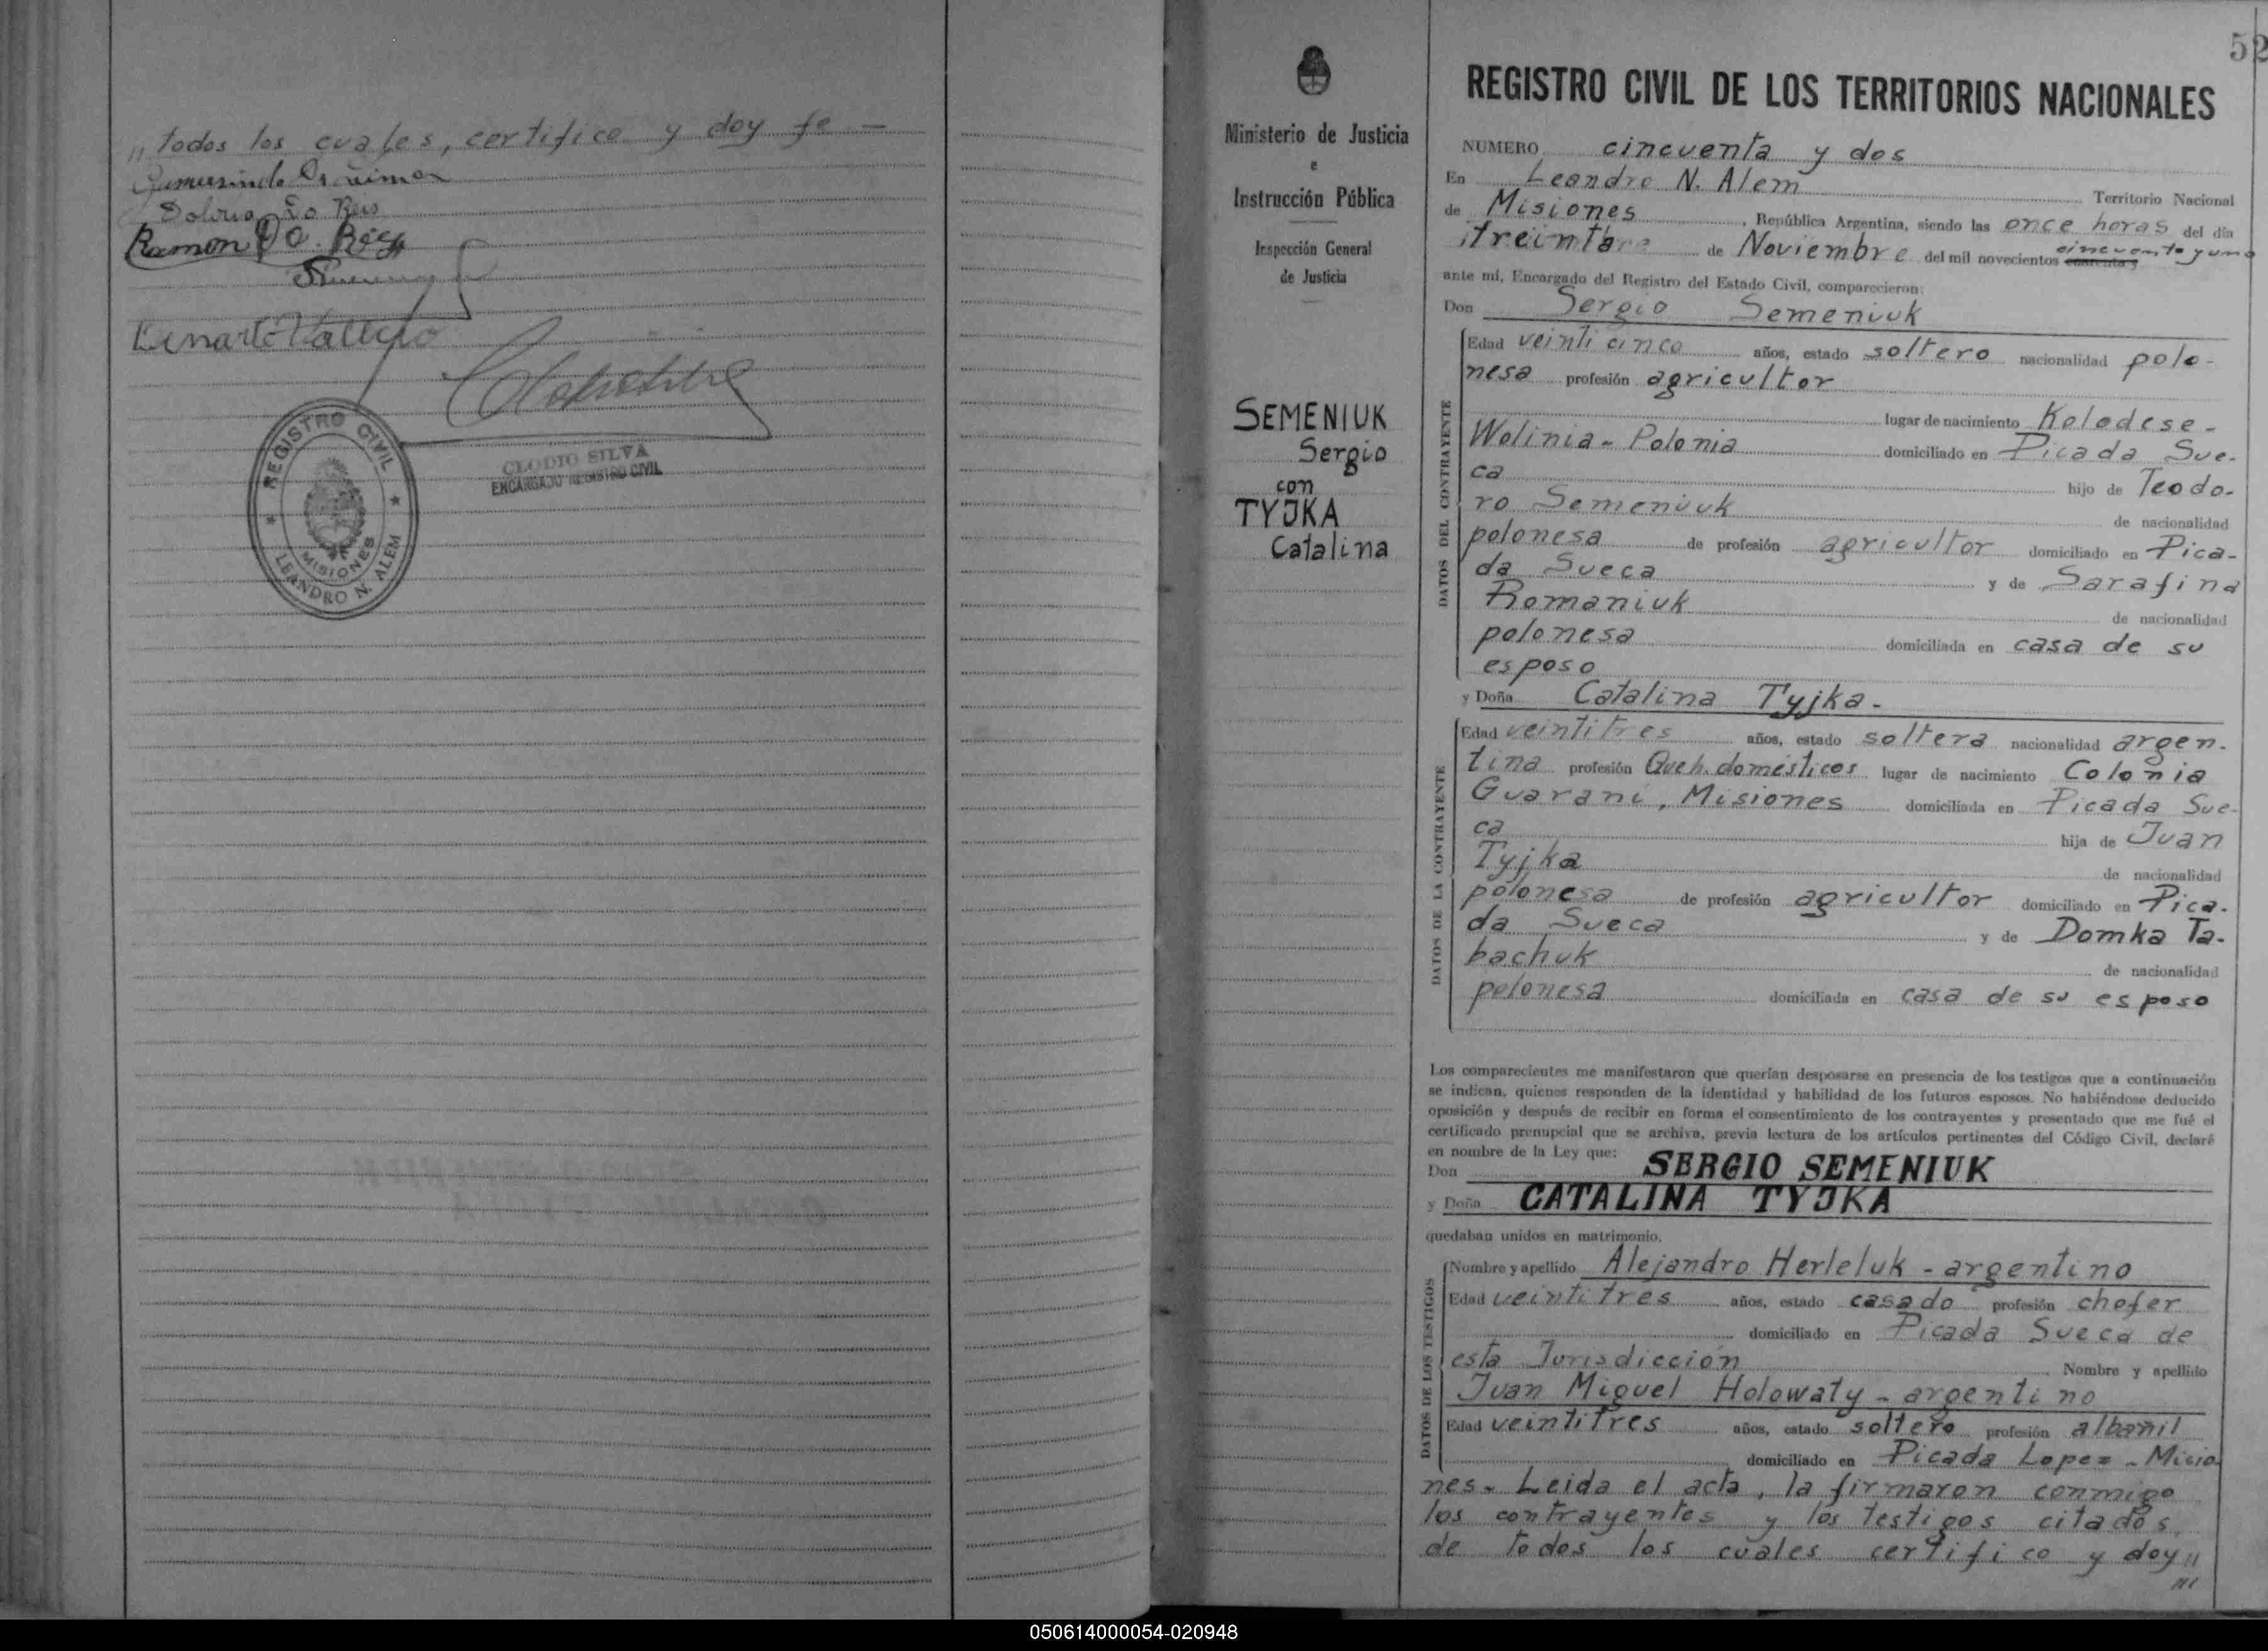 " todos los cuales, certifico y doy fe —
Ramon Do. Reis
REGISTRO CIVIL
MISIONES
LEANDRO N. ALEM
CLODIO SILVA
ENCARGADO REGISTRO CIVIL
Ministerio de Justicia
e
Instrucción Pública
Inspección General
de Justicia
SEMENIUK
Sergio
con
TYJKA
Catalina
52
REGISTRO CIVIL DE LOS TERRITORIOS NACIONALES
NUMERO cincuenta y dos
En Leandro N. Alem Territorio Nacional
de Misiones, República Argentina, siendo las once horas del día
treinta de Noviembre del mil novecientos cuarenta y cincuenta y uno
ante mí, Encargado del Registro del Estado Civil, comparecieron:
Don Sergio Semeniuk
DATOS DEL CONTRAYENTE
Edad veinticinco años, estado soltero nacionalidad polo-
nesa profesión agricultor
lugar de nacimiento Kolodese-
Wolinia - Polonia domiciliado en Picada Sue-
ca hijo de Teodo-
ro Semeniuk de nacionalidad
polonesa de profesión agricultor domiciliado en Pica-
da Sueca y de Sarafina
Romaniuk de nacionalidad
polonesa domiciliada en casa de su
esposo
y Doña Catalina Tyjka.
DATOS DE LA CONTRAYENTE
Edad veintitres años, estado soltera nacionalidad argen-
tina profesión Queh. domésticos lugar de nacimiento Colonia
Guaraní, Misiones domiciliada en Picada Sue-
ca hija de Juan
Tyjka de nacionalidad
polonesa de profesión agricultor domiciliado en Pica-
da Sueca y de Domka Ta-
bachuk de nacionalidad
polonesa domiciliada en casa de su esposo
Los comparecientes me manifestaron que querían desposarse en presencia de los testigos que a continuación
se indican, quienes responden de la identidad y habilidad de los futuros esposos. No habiéndose deducido
oposición y después de recibir en forma el consentimiento de los contrayentes y presentado que me fué el
certificado prenupcial que se archiva, previa lectura de los artículos pertinentes del Código Civil, declaré
en nombre de la Ley que:
Don SERGIO SEMENIUK
y Doña CATALINA TYJKA
quedaban unidos en matrimonio.
DATOS DE LOS TESTIGOS
Nombre y apellido Alejandro Herleluk - argentino
Edad veintitres años, estado casado profesión chofer
domiciliado en Picada Sueca de
esta Jurisdicción Nombre y apellido
Juan Miguel Holowaty - argentino
Edad veintitres años, estado soltero profesión albañil
domiciliado en Picada Lopez - Misio-
nes. Leida el acta, la firmaron conmigo
los contrayentes y los testigos citados,
de todos los cuales certifico y doy "
050614000054-020948